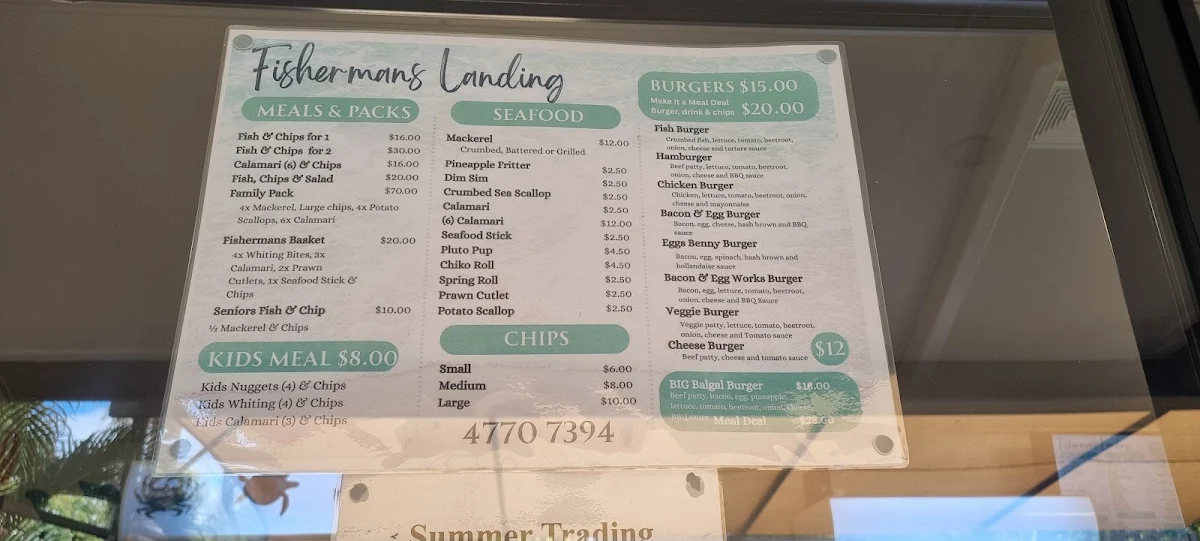 Fishermans Landing
MEALS & PACKS
Fish & Chips for 1 $16.00
Fish & Chips for 2 $30.00
Calamari (6) & Chips $16.00
Fish, Chips & Salad $20.00
Family Pack $70.00
4x Mackerel, Large chips, 4x Potato
Scallops, 6x Calamari
Fishermans Basket $20.00
4x Whiting Bites, 3x
Calamari, 2x Prawn
Cutlets, 1x Seafood Stick &
Chips
Seniors Fish & Chip $10.00
½ Mackerel & Chips
KIDS MEAL $8.00
Kids Nuggets (4) & Chips
Kids Whiting (4) & Chips
Kids Calamari (3) & Chips
SEAFOOD
Mackerel $12.00
Crumbed, Battered or Grilled
Pineapple Fritter $2.50
Dim Sim $2.50
Crumbed Sea Scallop $2.50
Calamari $2.50
(6) Calamari $12.00
Seafood Stick $2.50
Pluto Pup $4.50
Chiko Roll $4.50
Spring Roll $2.50
Prawn Cutlet $2.50
Potato Scallop $2.50
CHIPS
Small $6.00
Medium $8.00
Large $10.00
4770 7394
BURGERS $15.00
Make it a Meal Deal
Burger, drink & chips $20.00
Fish Burger
Crumbed fish, lettuce, tomato, beetroot,
onion, cheese and tartare sauce
Hamburger
Beef patty, lettuce, tomato, beetroot,
onion, cheese and BBQ sauce
Chicken Burger
Chicken, lettuce, tomato, beetroot, onion,
cheese and mayonnaise
Bacon & Egg Burger
Bacon, egg, cheese, hash brown and BBQ
sauce
Eggs Benny Burger
Bacon, egg, spinach, hash brown and
hollandaise sauce
Bacon & Egg Works Burger
Bacon, egg, lettuce, tomato, beetroot,
onion, cheese and BBQ Sauce
Veggie Burger
Veggie patty, lettuce, tomato, beetroot,
onion, cheese and Tomato sauce
Cheese Burger $12
Beef patty, cheese and tomato sauce
BIG Balgal Burger $18.00
Beef patty, bacon, egg, pineapple,
lettuce, tomato, beetroot, onion, cheese,
BBQ sauce
Meal Deal $23.00
Summer Trading